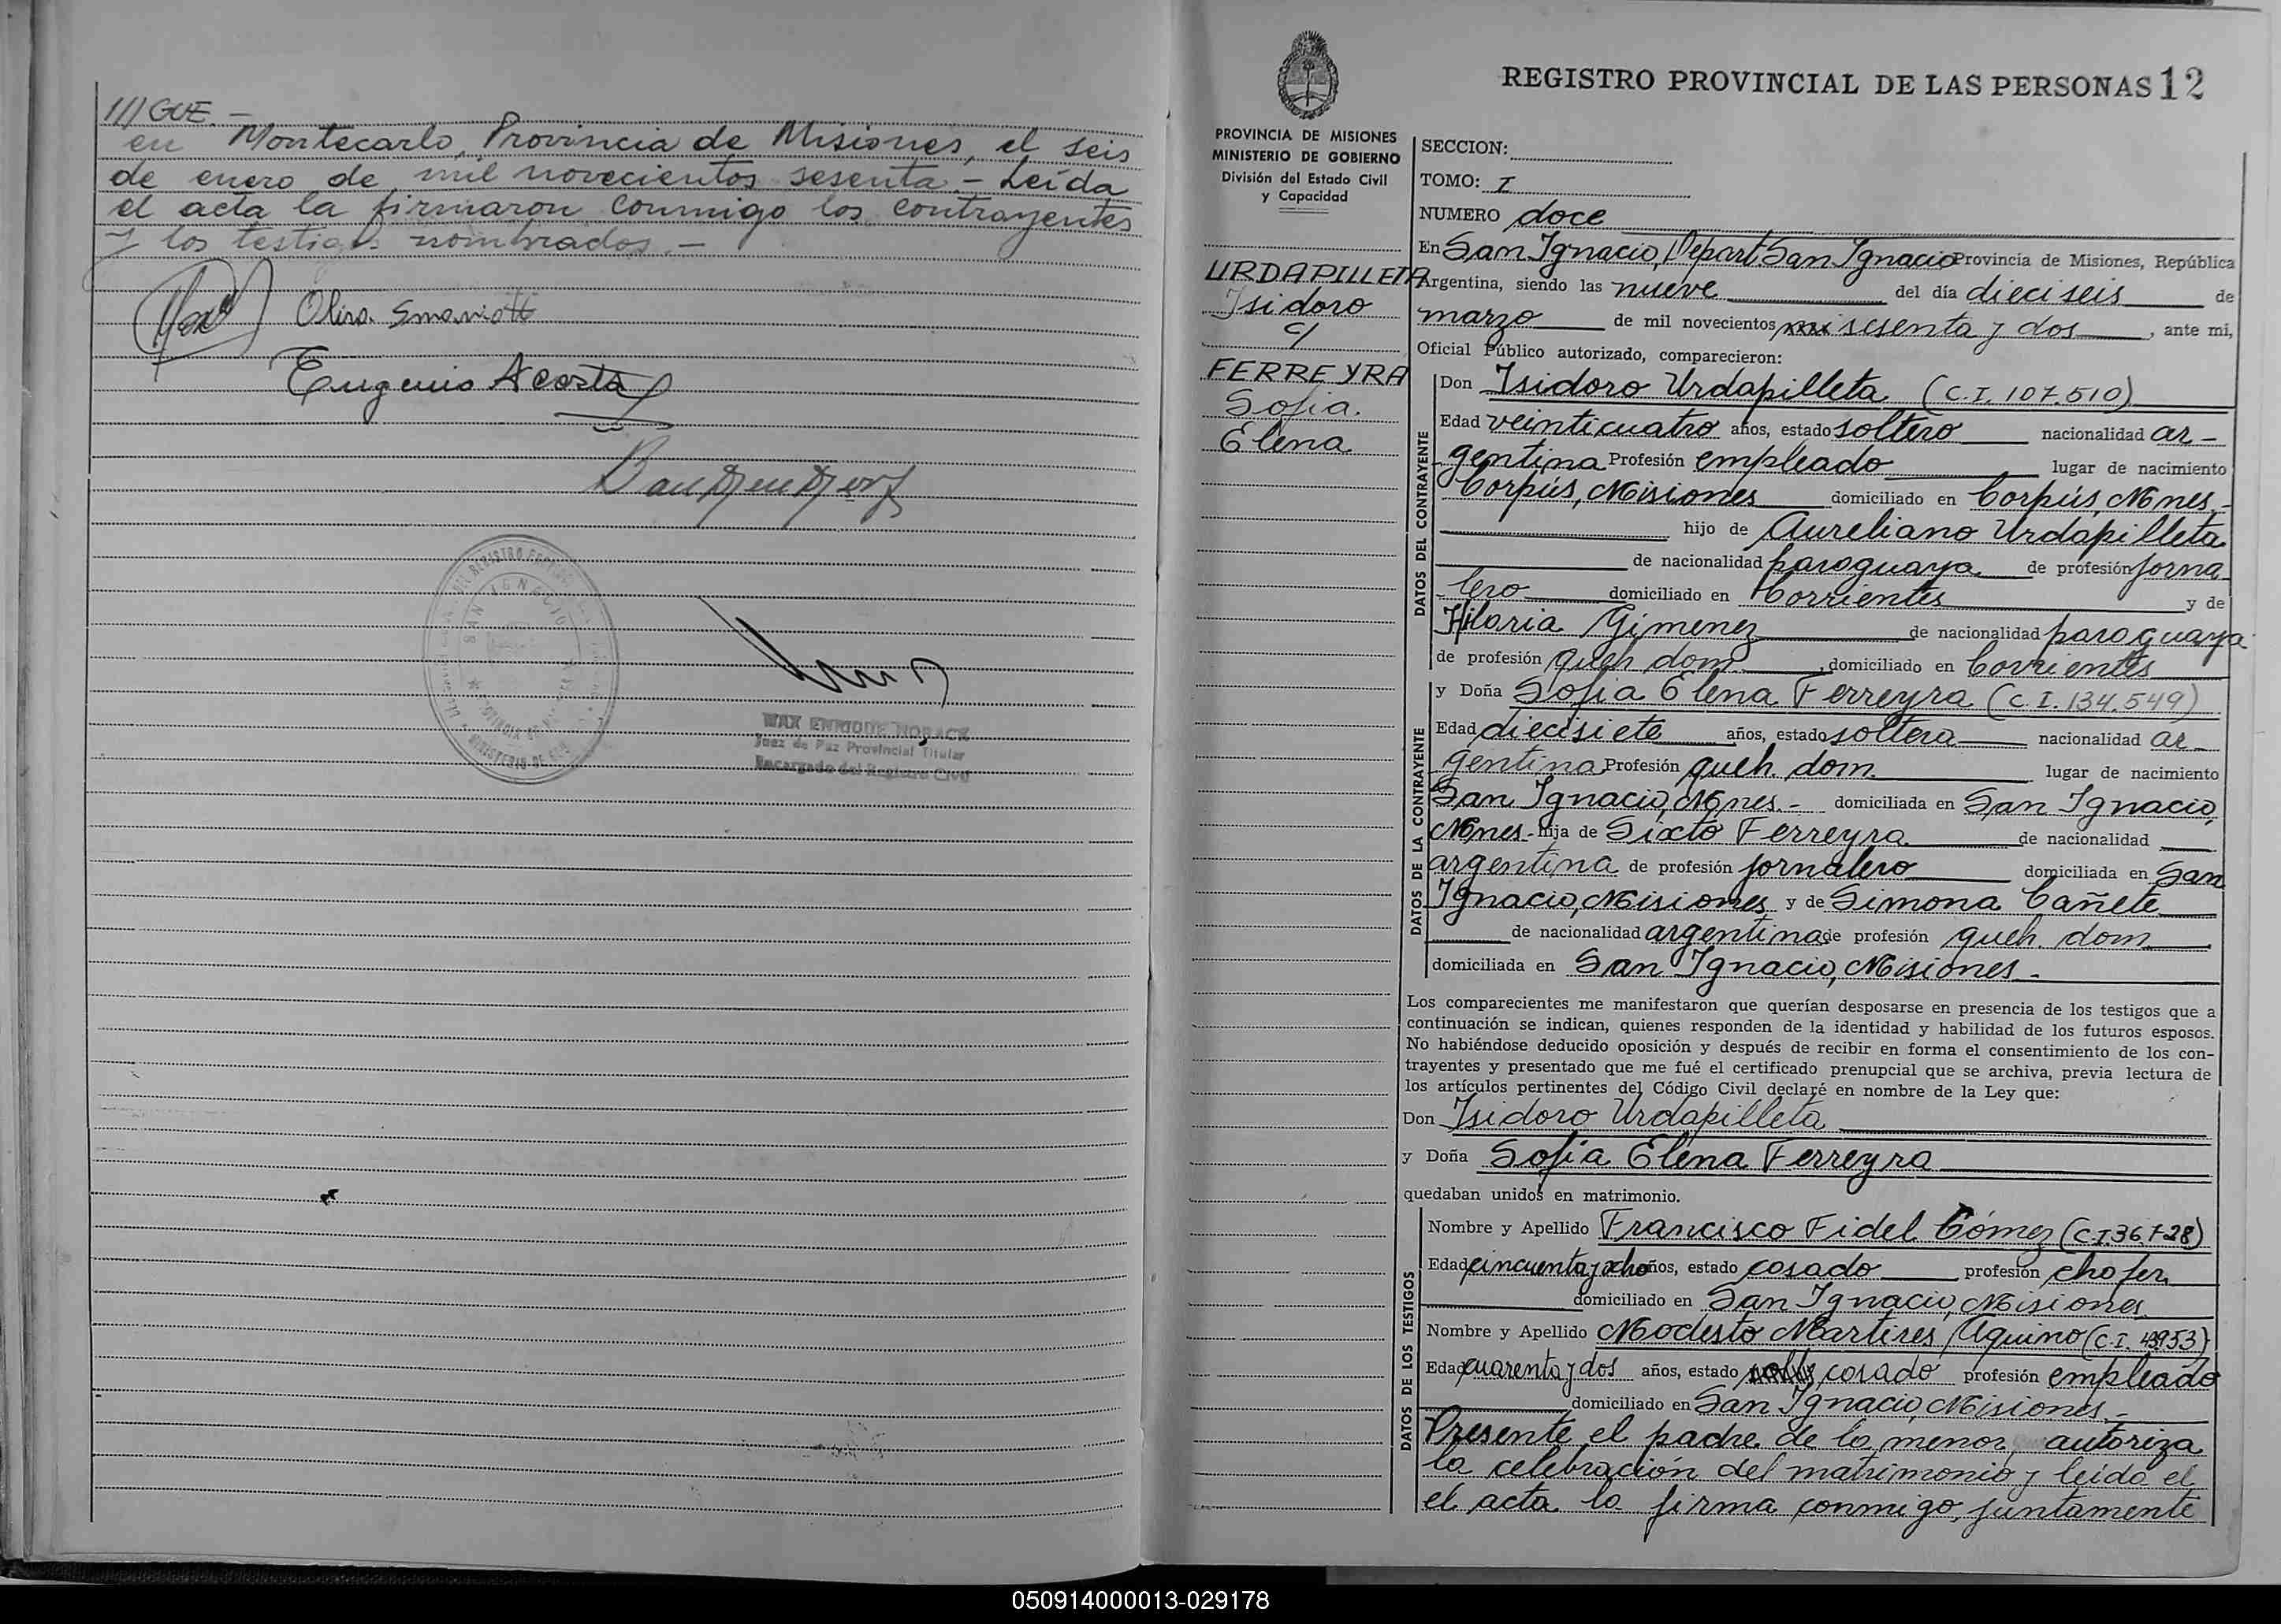 /// GUE.-
en Montecarlo, Provincia de Misiones, el seis
de enero de mil novecientos sesenta.- Leída
el acta la firmaron conmigo los contrayentes
y los testigos nombrados.-
Eugenio Acosta
SAN IGNACIO
MAX ENRIQUE NOBACK
Juez de Paz Provincial Titular
Encargado del Registro Civil
REGISTRO PROVINCIAL DE LAS PERSONAS 12
PROVINCIA DE MISIONES
MINISTERIO DE GOBIERNO
División del Estado Civil
y Capacidad
URDAPILLETA
Isidoro
c/
FERREYRA
Sofia
Elena
SECCION:
TOMO: I
NUMERO doce
En San Ignacio, Depart. San Ignacio Provincia de Misiones, República
Argentina, siendo las nueve del día dieciseis de
marzo de mil novecientos sesenta y dos, ante mí,
Oficial Público autorizado, comparecieron:
DATOS DEL CONTRAYENTE
Don Isidoro Urdapilleta (C.I. 107.510)
Edad veinticuatro años, estado soltero nacionalidad ar-
gentina Profesión empleado lugar de nacimiento
Corpús, Misiones domiciliado en Corpús, Mnes.-
hijo de Aureliano Urdapilleta
de nacionalidad paraguaya de profesión jorna
lero domiciliado en Corrientes y de
Hilaria Gimenez de nacionalidad paraguaya
de profesión queh. dom. , domiciliado en Corrientes
DATOS DE LA CONTRAYENTE
y Doña Sofia Elena Ferreyra (C.I. 134.549)
Edad diecisiete años, estado soltera nacionalidad ar-
gentina Profesión queh. dom. lugar de nacimiento
San Ignacio, Mnes.- domiciliada en San Ignacio,
Mnes- hija de Sixto Ferreyra de nacionalidad
argentina de profesión jornalero domiciliada en San
Ignacio, Misiones y de Simona Cañete
de nacionalidad argentina de profesión queh. dom
domiciliada en San Ignacio, Misiones.-
Los comparecientes me manifestaron que querían desposarse en presencia de los testigos que a
continuación se indican, quienes responden de la identidad y habilidad de los futuros esposos.
No habiéndose deducido oposición y después de recibir en forma el consentimiento de los con-
trayentes y presentado que me fué el certificado prenupcial que se archiva, previa lectura de
los artículos pertinentes del Código Civil declaré en nombre de la Ley que:
Don Isidoro Urdapilleta
y Doña Sofia Elena Ferreyra
quedaban unidos en matrimonio.
DATOS DE LOS TESTIGOS
Nombre y Apellido Francisco Fidel Gómez (C.I. 36.728)
Edad cincuenta y ocho años, estado casado profesión chofer
domiciliado en San Ignacio, Misiones
Nombre y Apellido Modesto Martires Aquino (C.I.
Edad cuarenta y dos años, estado casado profesión empleado
domiciliado en San Ignacio, Misiones.-
Presente el padre de la menor, autoriza
la celebración del matrimonio y leida el
el acta la firma conmigo, juntamente
050914000013-029178